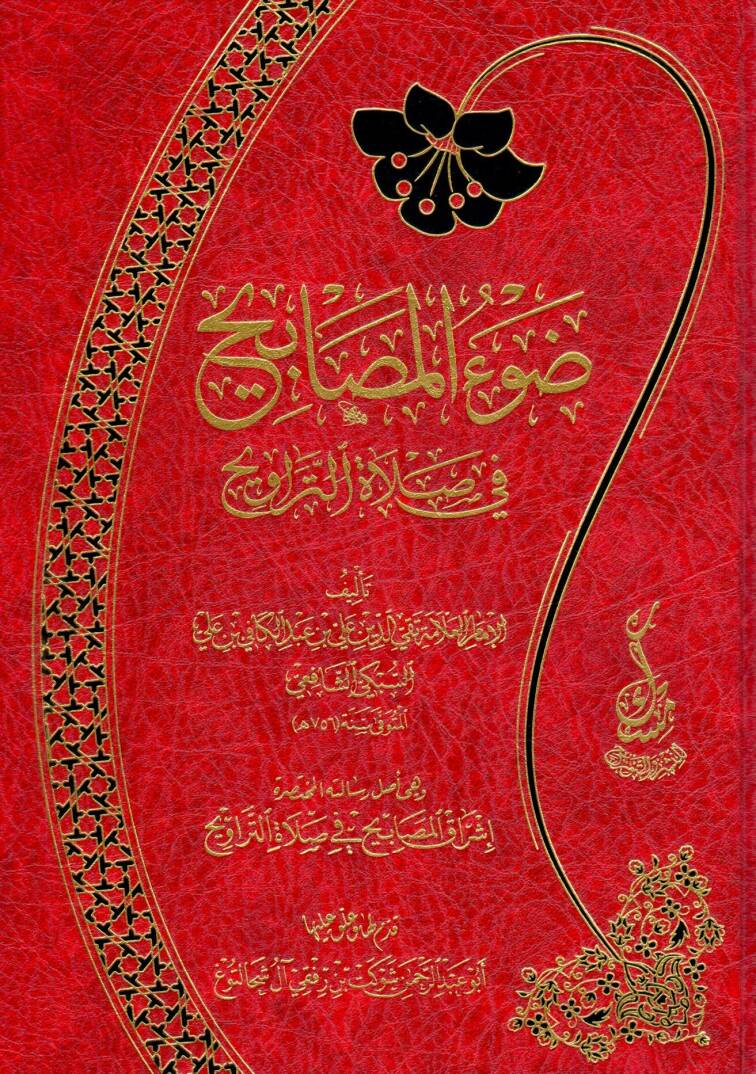 ضَوْءُ المَصَابِيحِ
فِي صَلَاةِ التَّرَاوِيحِ
تَأْلِيفُ
الإِمَام العَلَّامَة تَقِيّ الدِّين عَلِيّ بْن عَبْدِ الكَافِي بْن عَلِيّ
السُّبْكِيّ الشَّافِعِيّ
المُتَوَفَّى سَنَة (٧٥٦هـ)
وهي أصل رسالته المختصرة
إِشْرَاق المَصَابِيح فِي صَلَاةِ التَّرَاوِيح
قدم لها وعلق عليها
أَبُو عَبْدِ الرَّحْمَن شَوْكَت بْن رِفْقِي آل شحالتوغ
للنشر والتوزيع